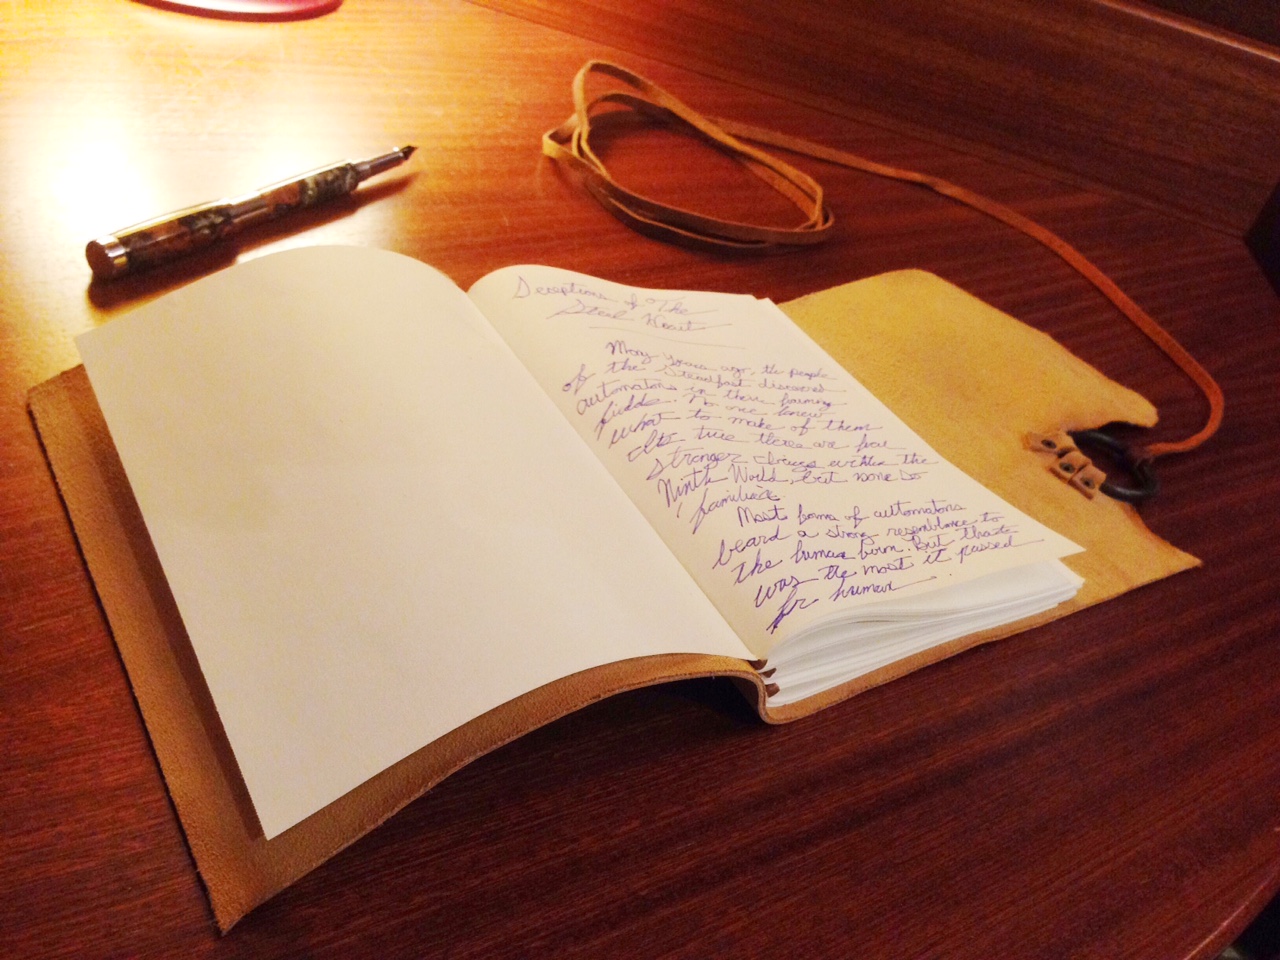 Deceptions of The
Steel Heart
Many years ago, the people
of the Steadfast discovered
automatons in there farming
fields. No one knew
what to make of them
Its true there are few
stranger things within the
Ninth World, but none so
familiar.
Most forms of automatons
beard a strong resemblance to
the human form. But thats
was the most it passed
for human